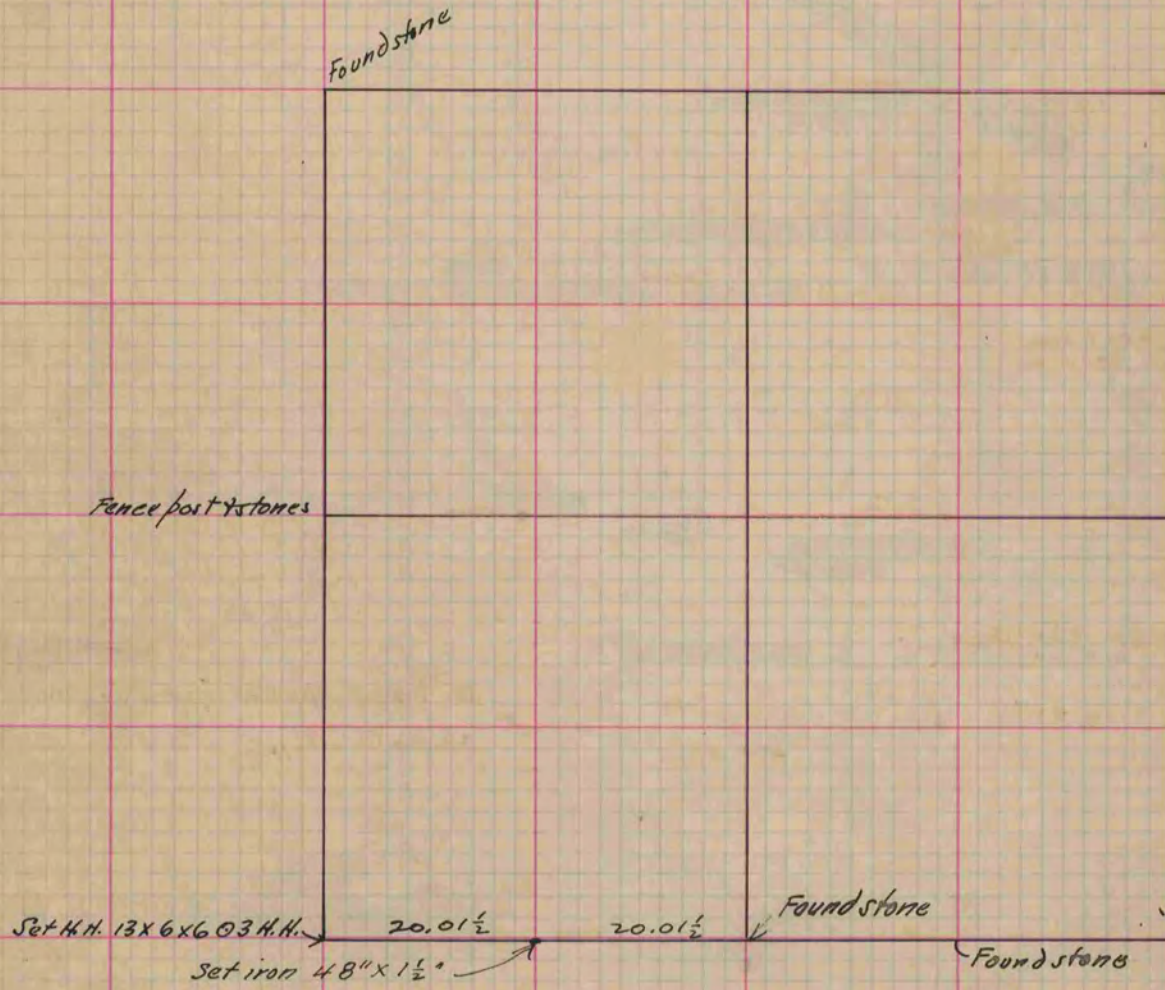 Found stone
Fence post & stones
Set H.H. 13 x 6 x 6 03 H.H.
20.01½
20.01½
Found stone
Set iron 48" x 1½"
Found stone